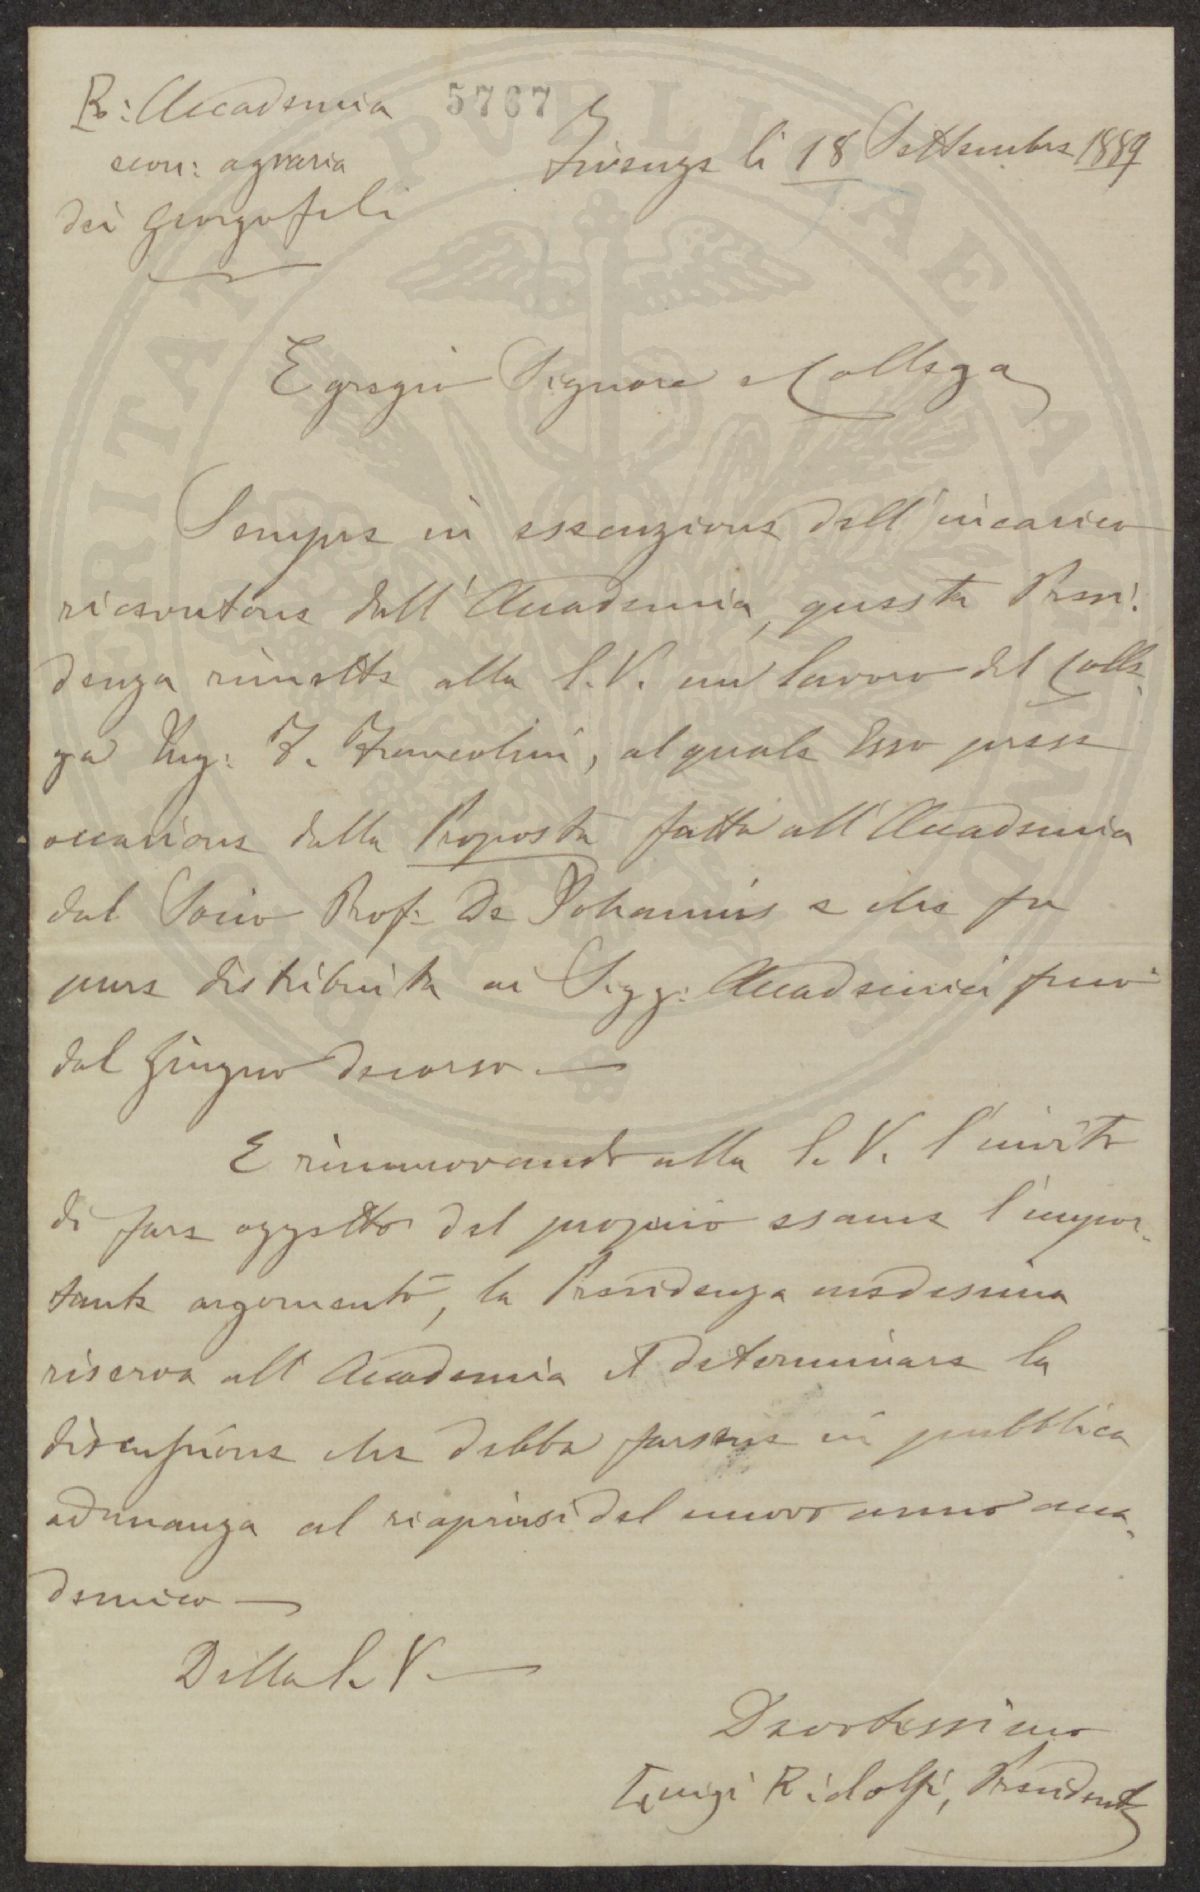 R: Accademia
econ: agraria
dei Georgofili
5767
Firenze li 18 Settembre 1889
Egregio Signore e Collega
Sempre in essecuzione dell'incarico
ricevutone dall'Accademia, questa Presi-
denza rimette alla S.V. un lavoro del Colle-
ga Ing: F. Francolini, al quale Esso prese
occasione dalla Proposta fatta all'Accademia
dal Socio Prof: De Johannis e che fu
pure distribuita ai Sigg: Accademici fino
dal Giugno decorso —
E rinnuovando alla S. V. l'invito
di fare oggetto del proprio esame l'impor-
tante argomento, la Presidenza medesima
riserva all'Accademia il determinare la
discussione che debba farsene in pubblica
adunanza al riaprirsi del nuovo anno acca-
demico —
Della S. V. —
Devotissimo
Luigi Ridolfi, Presidente